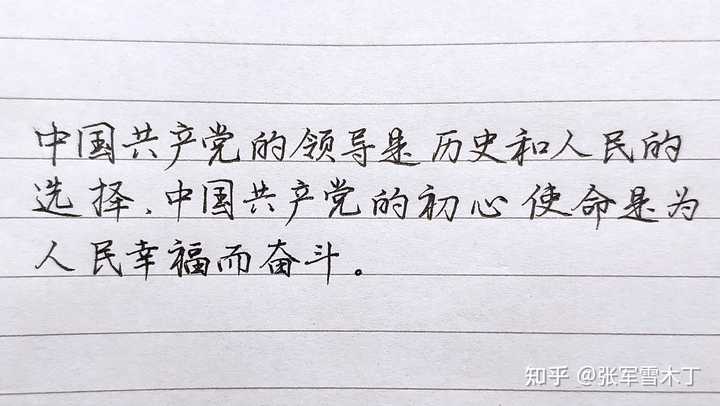 中国共产党的领导是历史和人民的
选择、中国共产党的初心使命是为
人民幸福而奋斗。
知乎 @张军雪木丁